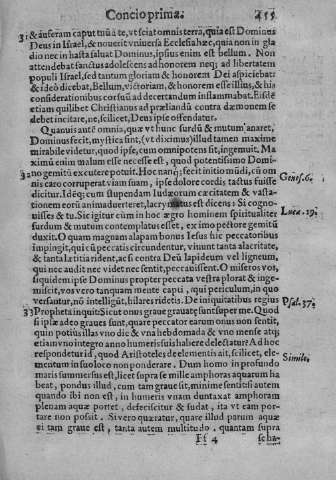 Concio prima.
455
31 & auferam caput tuũ a te, vt sciat omnis terra, quia est Dominus
Deus in Israel, & nouerit vniuersa Ecclesia hæc, quia non in gla
dio nec in hasta saluat Dominus, ipsius enim est bellum. Non
attendebat sanctus adolescens ad honorem neq; ad libertatem
populi Israel, sed tantum gloriam & honorem Dei aspiciebat:
& ideò dicebat, Bellum, victoriam, & honorem esse illius, & his
considerationibus cor suũ ad decertandum inflammabat. Eisdē
etiam quilibet Christianus ad præliandũ contra dæmonem se
debet incitare, ne, scilicet, Deus ipse offendatur.
Quamuis autē omnia, quæ vt hunc surdũ & mutum sanaret,
Dominus fecit, mystica sint, (vt diximus) illud tamen maxime
mirabile videtur, quod ipse, cum omnipotens sit, ingemuit. Ma
ximũ enim malum esse necesse est, quod potentissimo Domi-
32 no gemitũ excutere potuit. Hoc nanq; fecit initio mũdi, cũ om
nis caro corruperat viam suam, ipse dolore cordis tactus fuisse
Genes. 6.
dicitur. Idẽq; cum stupendam Iudæorum cæcitatem & vasta-
tionem eorũ animaduerteret, lacrymatus est dicens: Si cogno-
uisses & tu. Sic igitur cũm in hoc ægro hominem spiritualiter
Lucæ. 19.
surdum & mutum contemplatus esset, ex imo pectore gemitũ
duxit. O quam magnam alapam bonus Iesus hic peccatoribus
impingit, qui cũ peccatis circundentur, viuunt tanta alacritate,
& tanta lætitia rident, ac si contra Deũ lapideum vel ligneum,
qui nec audit nec videt nec sentit, peccauissent. O miseros vos,
siquidem ipse Dominus propter peccata vestra plorat & inge-
miscit, vos vero tanquam mente capti, qui periculum, in quo
versantur, nõ intelligũt, hilares ridetis. De iniquitatibus regius
Psal. 37.
33 Propheta inquit: Sicut onus graue grauatę sunt super me. Quod
si ipsæ adeo graues sunt, quare peccator earum onus non sentit,
quin potius illas vno die & vna hebdomada & vno mense atq;
etiam vno integro anno humeris suis habere delectatur? Ad hoc
respondetur id, quod Aristoteles de elementis ait, scilicet, ele-
Simile.
mentum in suo loco non ponderare. Dum homo in profundo
maris summersus est, licet supra se mille amphoras aquarum ha
beat, pondus illud, cum tam graue sit, minime sentit: si autem
quando ibi non est, in humeris vnam duntaxat amphoram
plenam aquæ portet, defetiscitur & sudat, ita vt eam por-
tare non possit. Si vero quæratur, quare illud parum aquæ
ei tam graue est, tanta autem multitudo, quantam supra
Ff 4
se ha-